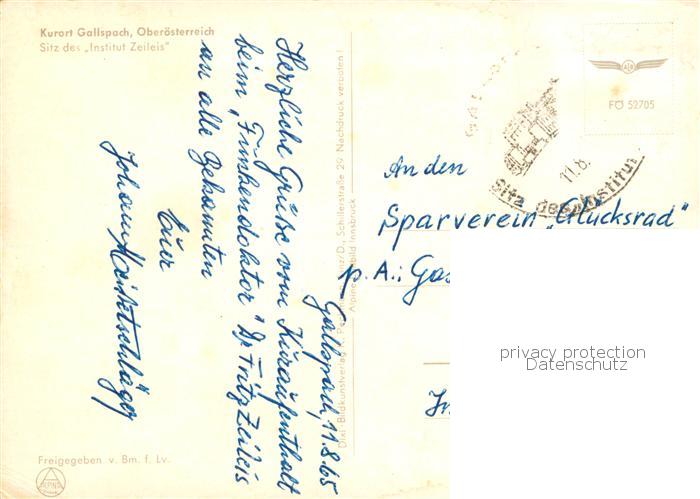 Kurort Gallspach, Oberösterreich
Sitz des „Institut Zeileis"
Gallspach, 11.8.65
Herzliche Grüße vom Kuraufenthalt
beim „Funkendoktor" Dr. Fritz Zeileis
an alle Bekannten
Euer
Johann
Freigegeben v. Bm. f. Lv.
ALPINE
Schillerstraße 29 Nachdruck verboten!
Alpine Luftbild Innsbruck
FO 52705
11.8.
Sitz des Institut
An den
Sparverein „Glücksrad"
p. A.: Gas
privacy protection
Datenschutz